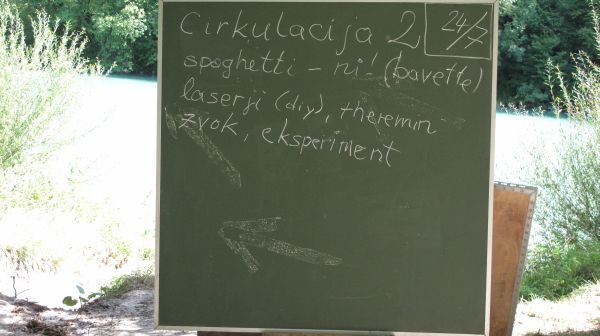 Cirkulacija 2
24/7
spaghetti - ni! (bavette)
laserji (diy), theremin
zvok, eksperiment